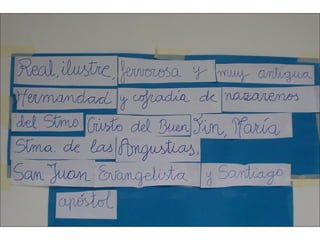 Real, ilustre, fervorosa y muy antigua
Hermandad y cofradía de nazarenos
del Stmo Cristo del Buen Fin, María
Stma. de las Angustias,
San Juan Evangelista y Santiago
apóstol